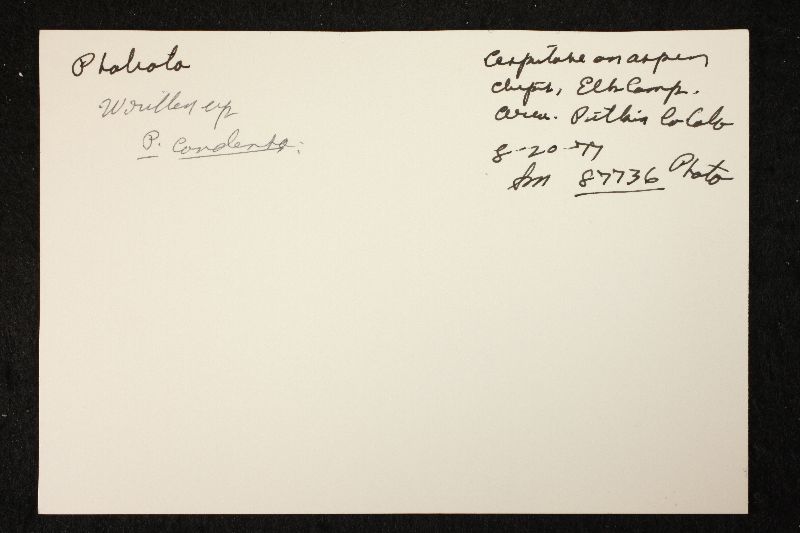 Pholiota
Written up
P. condensa.
Cespitose on aspen
chips, Elk Camp.
area. Pitkin Co Colo
8-20-77
Sm 87736 Photo